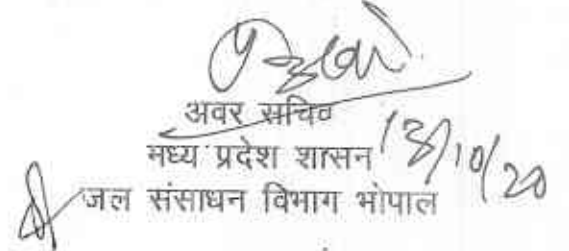 अवर सचिव
मध्य प्रदेश शासन 13/10/20
जल संसाधन विभाग भोपाल